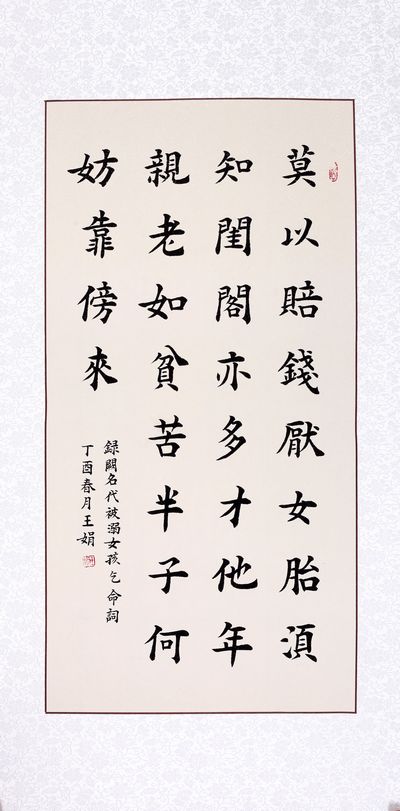 莫以賠錢厭女胎須
知閨閣亦多才他年
親老如貧苦半子何
妨靠傍來
録闕名代被溺女孩乞命詞
丁酉春月王娟